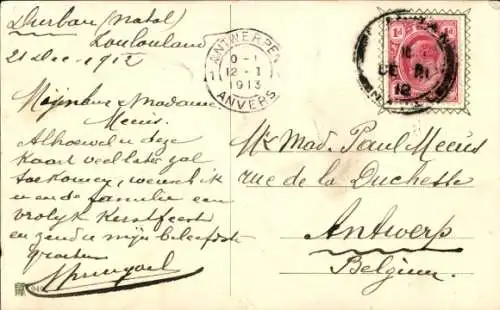 Durban (Natal)
Zoulouland
21 Dec - 1912
Mijnheer & Madame
Meeus.
Alhoewel u deze
kaart veel later zal
toekomen, wensch ik
u en de familie een
vrolijk Kerstfeest
en zende mijn beleefste
groeten
ANTWERPEN
0-1
12-1
1913
ANVERS
1d 1d
12
Mr Mad. Paul Meeùs
rue de la Duchesse
Antwerp
Belgium.